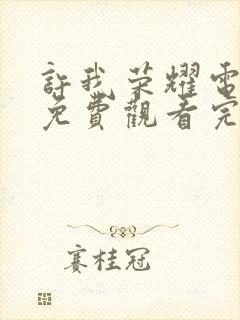 許我荣耀電
免費觀看完
賽桂冠